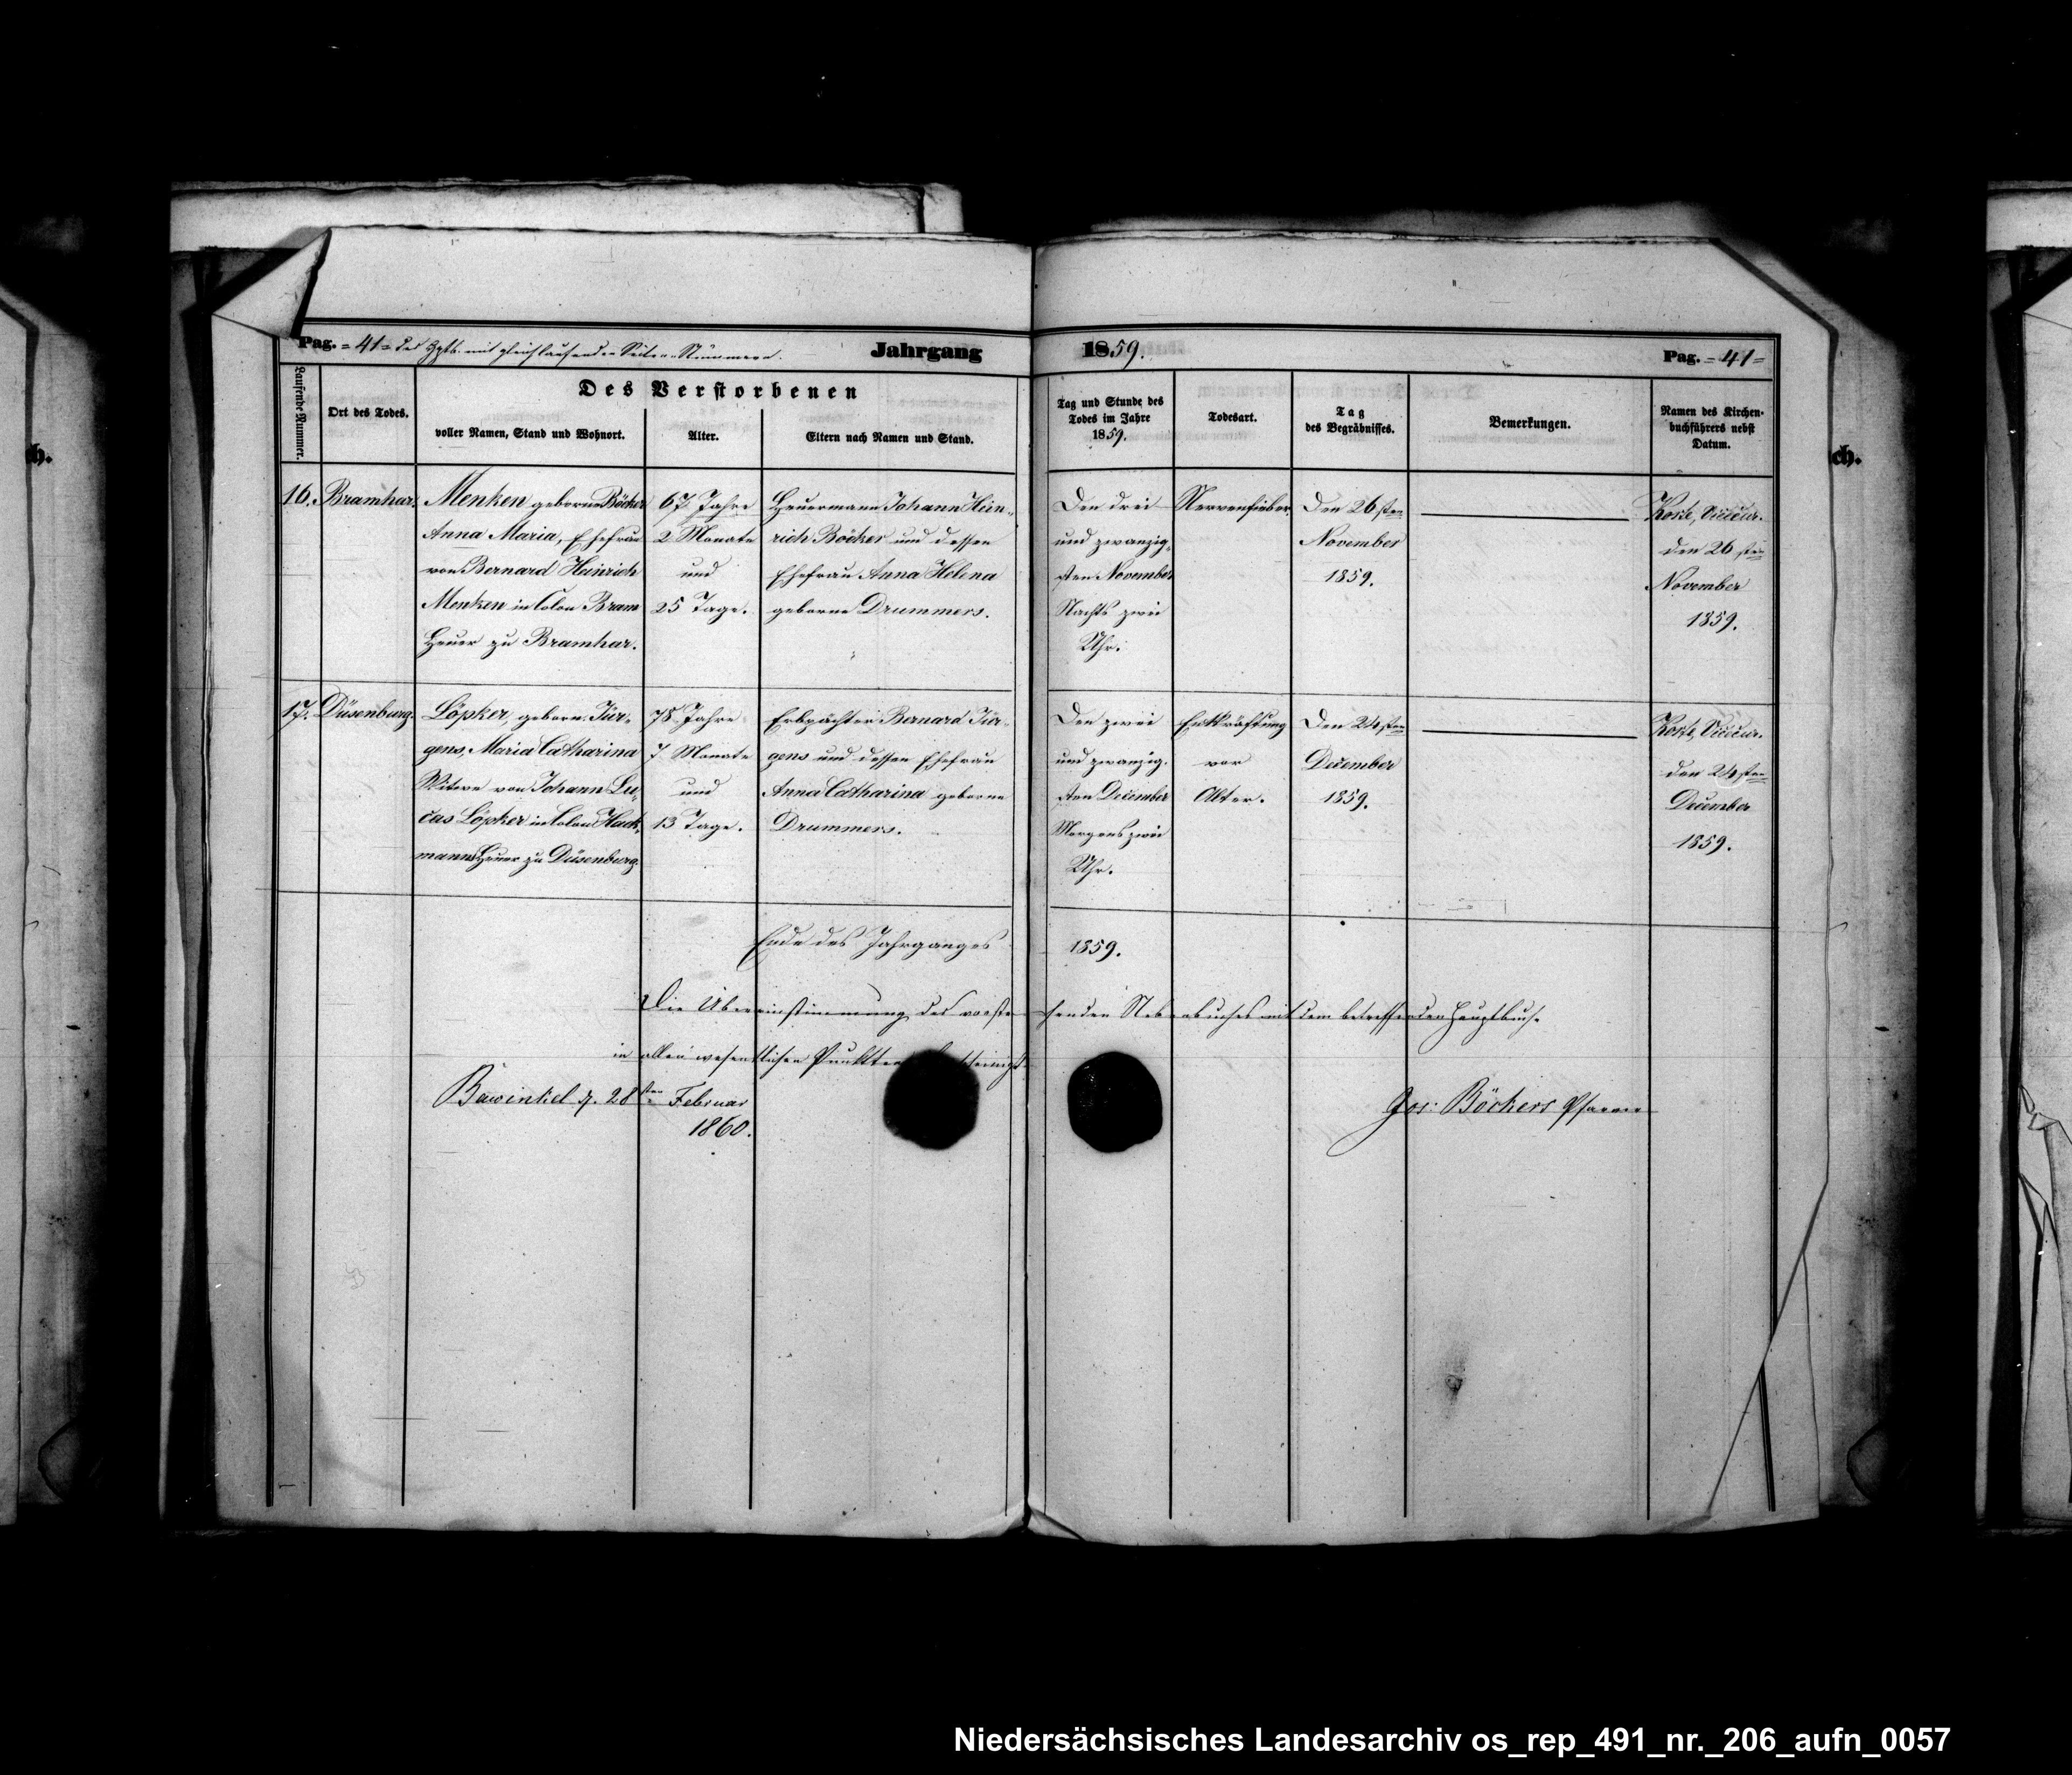 Pag. = 41 = des Hptb. mit gleichlaufenden Seiten-Nummern.
Jahrgang 1859.
Pag. = 41 =
Laufende Nummer.
Ort des Todes.
Des Verstorbenen
voller Namen, Stand und Wohnort.
Alter.
Eltern nach Namen und Stand.
Tag und Stunde des
Todes im Jahre
1859.
Todesart.
Tag
des Begräbnisses.
Bemerkungen.
Namen des Kirchen-
buchführers nebst
Datum.
16.
Bramhar.
Menken geborne Böcker
Anna Maria, Ehefrau
von Bernard Heinrich
Menken in Colon Bram
Heuer zu Bramhar.
67 Jahre
2 Monate
und
25 Tage.
Heuermann Johann Hein-
rich Böcker und dessen
Ehefrau Anna Helena
geborne Drummers.
Den drei
und zwanzig-
sten November
Nachts zwei
Uhr.
Nervenfieber.
Den 26sten
November
1859.
Koste, Vicecur.
den 26sten
November
1859.
17.
Düsenburg.
Löpker, geborn. Jür-
gens, Maria Catharina
Witwe von Johann Lu-
cas Löpker in Colon Hack-
manns Heuer zu Düsenburg.
78 Jahre
7 Monate
und
13 Tage.
Erbpächter Bernard Jür-
gens und dessen Ehefrau
Anna Catharina geborne
Drummers.
Den zwei
und zwanzig-
sten December
Morgens zwei
Uhr.
Entkräftung
vor
Alter.
Den 24sten
December
1859.
Koste, Vicecur.
den 24sten
December
1859.
Ende des Jahrganges 1859.
Die Übereinstimmung des vorstehenden Nebenbuches mit dem betreffenden Hauptbuche
in allen wesentlichen Punkten bescheinigt
Bawinkel d. 28sten Februar
1860.
Jos: Böckers Pfarrer
ch.
ch.
Niedersächsisches Landesarchiv os_rep_491_nr._206_aufn_0057